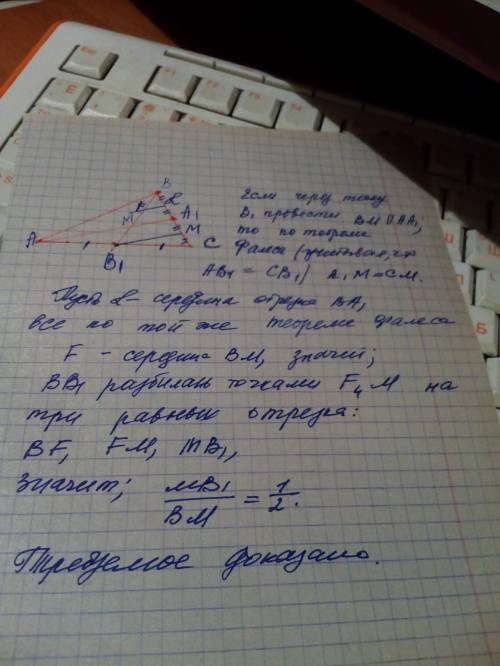 B
L
F
M
A₁
M
A
B₁
C
Если через точку
B₁ провести BM || AA₁,
то по теореме
Фалеса (учитывая, что
AB₁ = CB₁) A₁M = CM.
Пусть L - середина отрезка BA,
все по той же теореме Фалеса
F - середина BM, значит;
BB₁ разбилась точками F и M на
три равных отрезка:
BF, FM, MB₁,
Значит; MB₁/BM = 1/2.
Требуемое доказано.